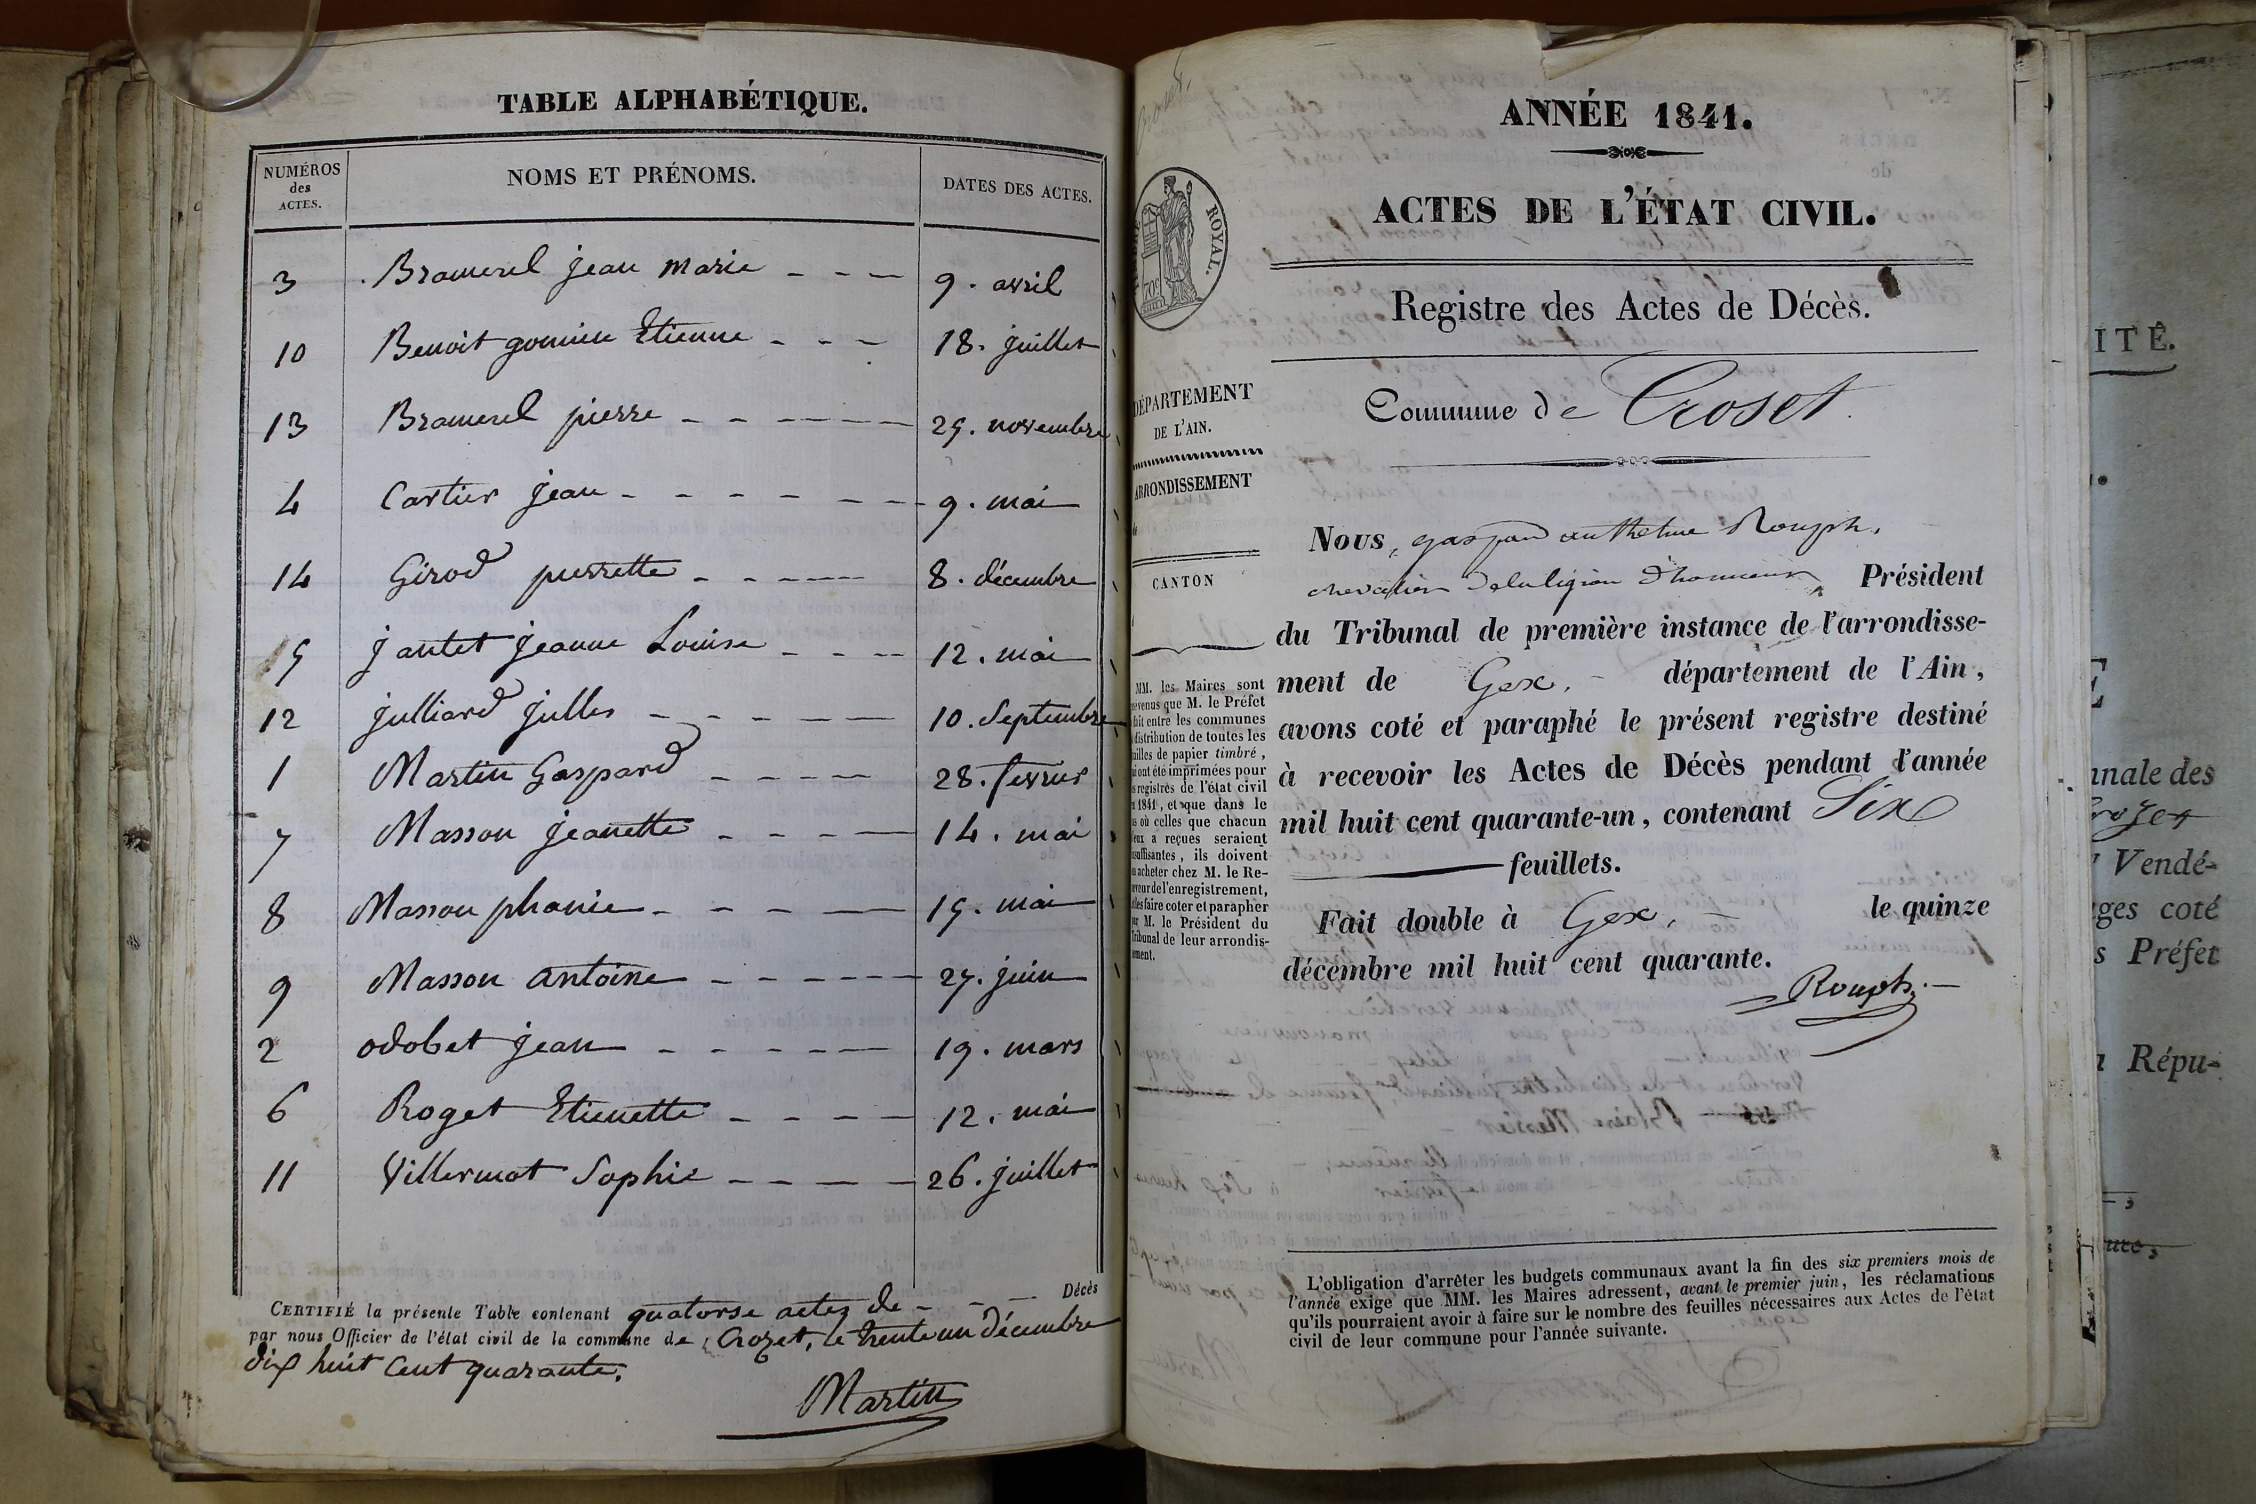 TABLE ALPHABÉTIQUE.
NUMÉROS des ACTES. NOMS ET PRÉNOMS. DATES DES ACTES.
3 Bramerel jean marie - - - 9. avril
10 Benoit gonnieu Etienne - - - 18. juillet
13 Bramerel pierre - - - - - 25. novembre
4 Cartier jean - - - - - - 9. mai
14 Girod pierrette - - - - - 8. décembre
5 jantet jeanne Louise - - - 12. mai
12 julliard julles - - - - - 10. Septembre
1 Martin Gaspard - - - - - 28. fevrier
7 Masson jeanette - - - - 14. mai
8 Masson phanie - - - - 15. mai
9 Masson antoine - - - - - 27. juin
2 odobet jean - - - - - 19. mars
6 Roget Etienette - - - - 12. mai
11 Villermot Sophie - - - - 26. juillet
CERTIFIÉ la présente Table contenant quatorse actes de - - - Décès
par nous Officier de l'état civil de la commune de Crozet, le trente un décembre
dix huit cent quarante.
Martin
ANNÉE 1841.
ACTES DE L'ÉTAT CIVIL.
ROYAL.
Registre des Actes de Décès.
Commune de Croset
DÉPARTEMENT
DE L'AIN.
ARRONDISSEMENT
CANTON
MM. les Maires sont
prévenus que M. le Préfet
fait entre les communes
distribution de toutes les
feuilles de papier timbré,
qui ont été imprimées pour
les registres de l'état civil
1841, et que dans le
cas où celles que chacun
d'eux a reçues seraient
insuffisantes, ils doivent
en acheter chez M. le Re-
ceveur de l'enregistrement,
et les faire coter et parapher
par M. le Président du
Tribunal de leur arrondis-
sement.
Nous, gaspard anthelme Rouph,
chevalier de la légion d'honneur, Président
du Tribunal de première instance de l'arrondisse-
ment de Gex, - département de l'Ain,
avons coté et paraphé le présent registre destiné
à recevoir les Actes de Décès pendant l'année
mil huit cent quarante-un, contenant Six
feuillets.
Fait double à Gex, - le quinze
décembre mil huit cent quarante.
Rouph
L'obligation d'arrêter les budgets communaux avant la fin des six premiers mois de
l'année exige que MM. les Maires adressent, avant le premier juin, les réclamations
qu'ils pourraient avoir à faire sur le nombre des feuilles nécessaires aux Actes de l'état
civil de leur commune pour l'année suivante.
ITÉ.
nnale des
Vendé-
ges coté
s Préfet
Répu-